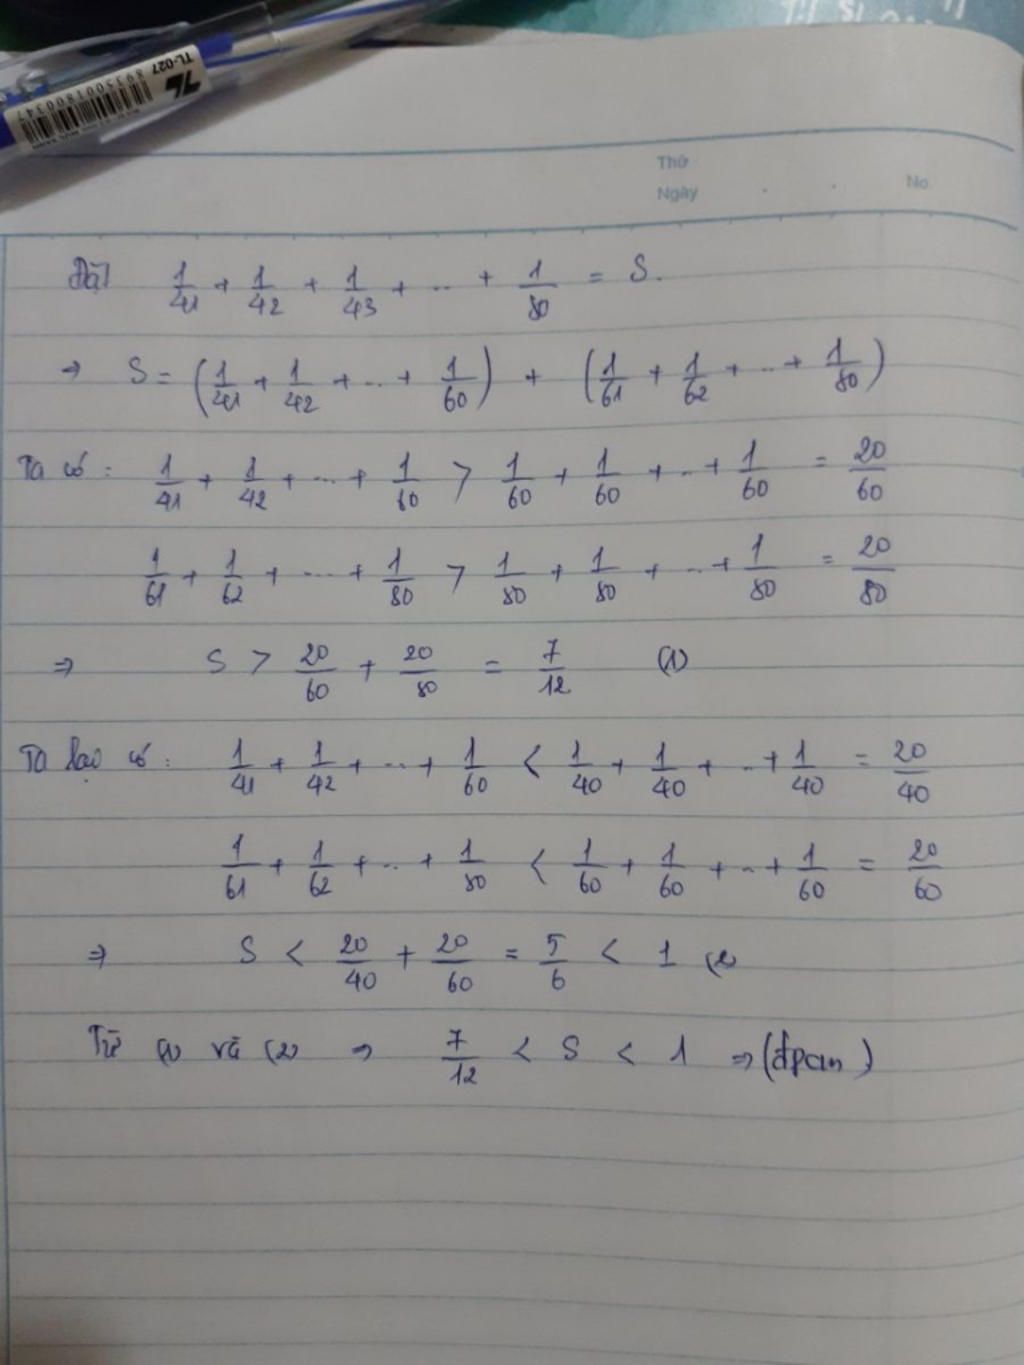 TL-027
8935001800347
Thứ
Ngày
No.
Đặt 1/41 + 1/42 + 1/43 + .. + 1/80 = S.
→ S = (1/41 + 1/42 + .. + 1/60) + (1/61 + 1/62 + .. + 1/80)
Ta có : 1/41 + 1/42 + ... + 1/60 > 1/60 + 1/60 + .. + 1/60 = 20/60
1/61 + 1/62 + ... + 1/80 > 1/80 + 1/80 + .. + 1/80 = 20/80
⇒ S > 20/60 + 20/80 = 7/12 (1)
Ta lại có : 1/41 + 1/42 + .. + 1/60 < 1/40 + 1/40 + .. + 1/40 = 20/40
1/61 + 1/62 + .. + 1/80 < 1/60 + 1/60 + .. + 1/60 = 20/60
⇒ S < 20/40 + 20/60 = 5/6 < 1 (2)
Từ (1) và (2) ⇒ 7/12 < S < 1 ⇒ (đpcm)